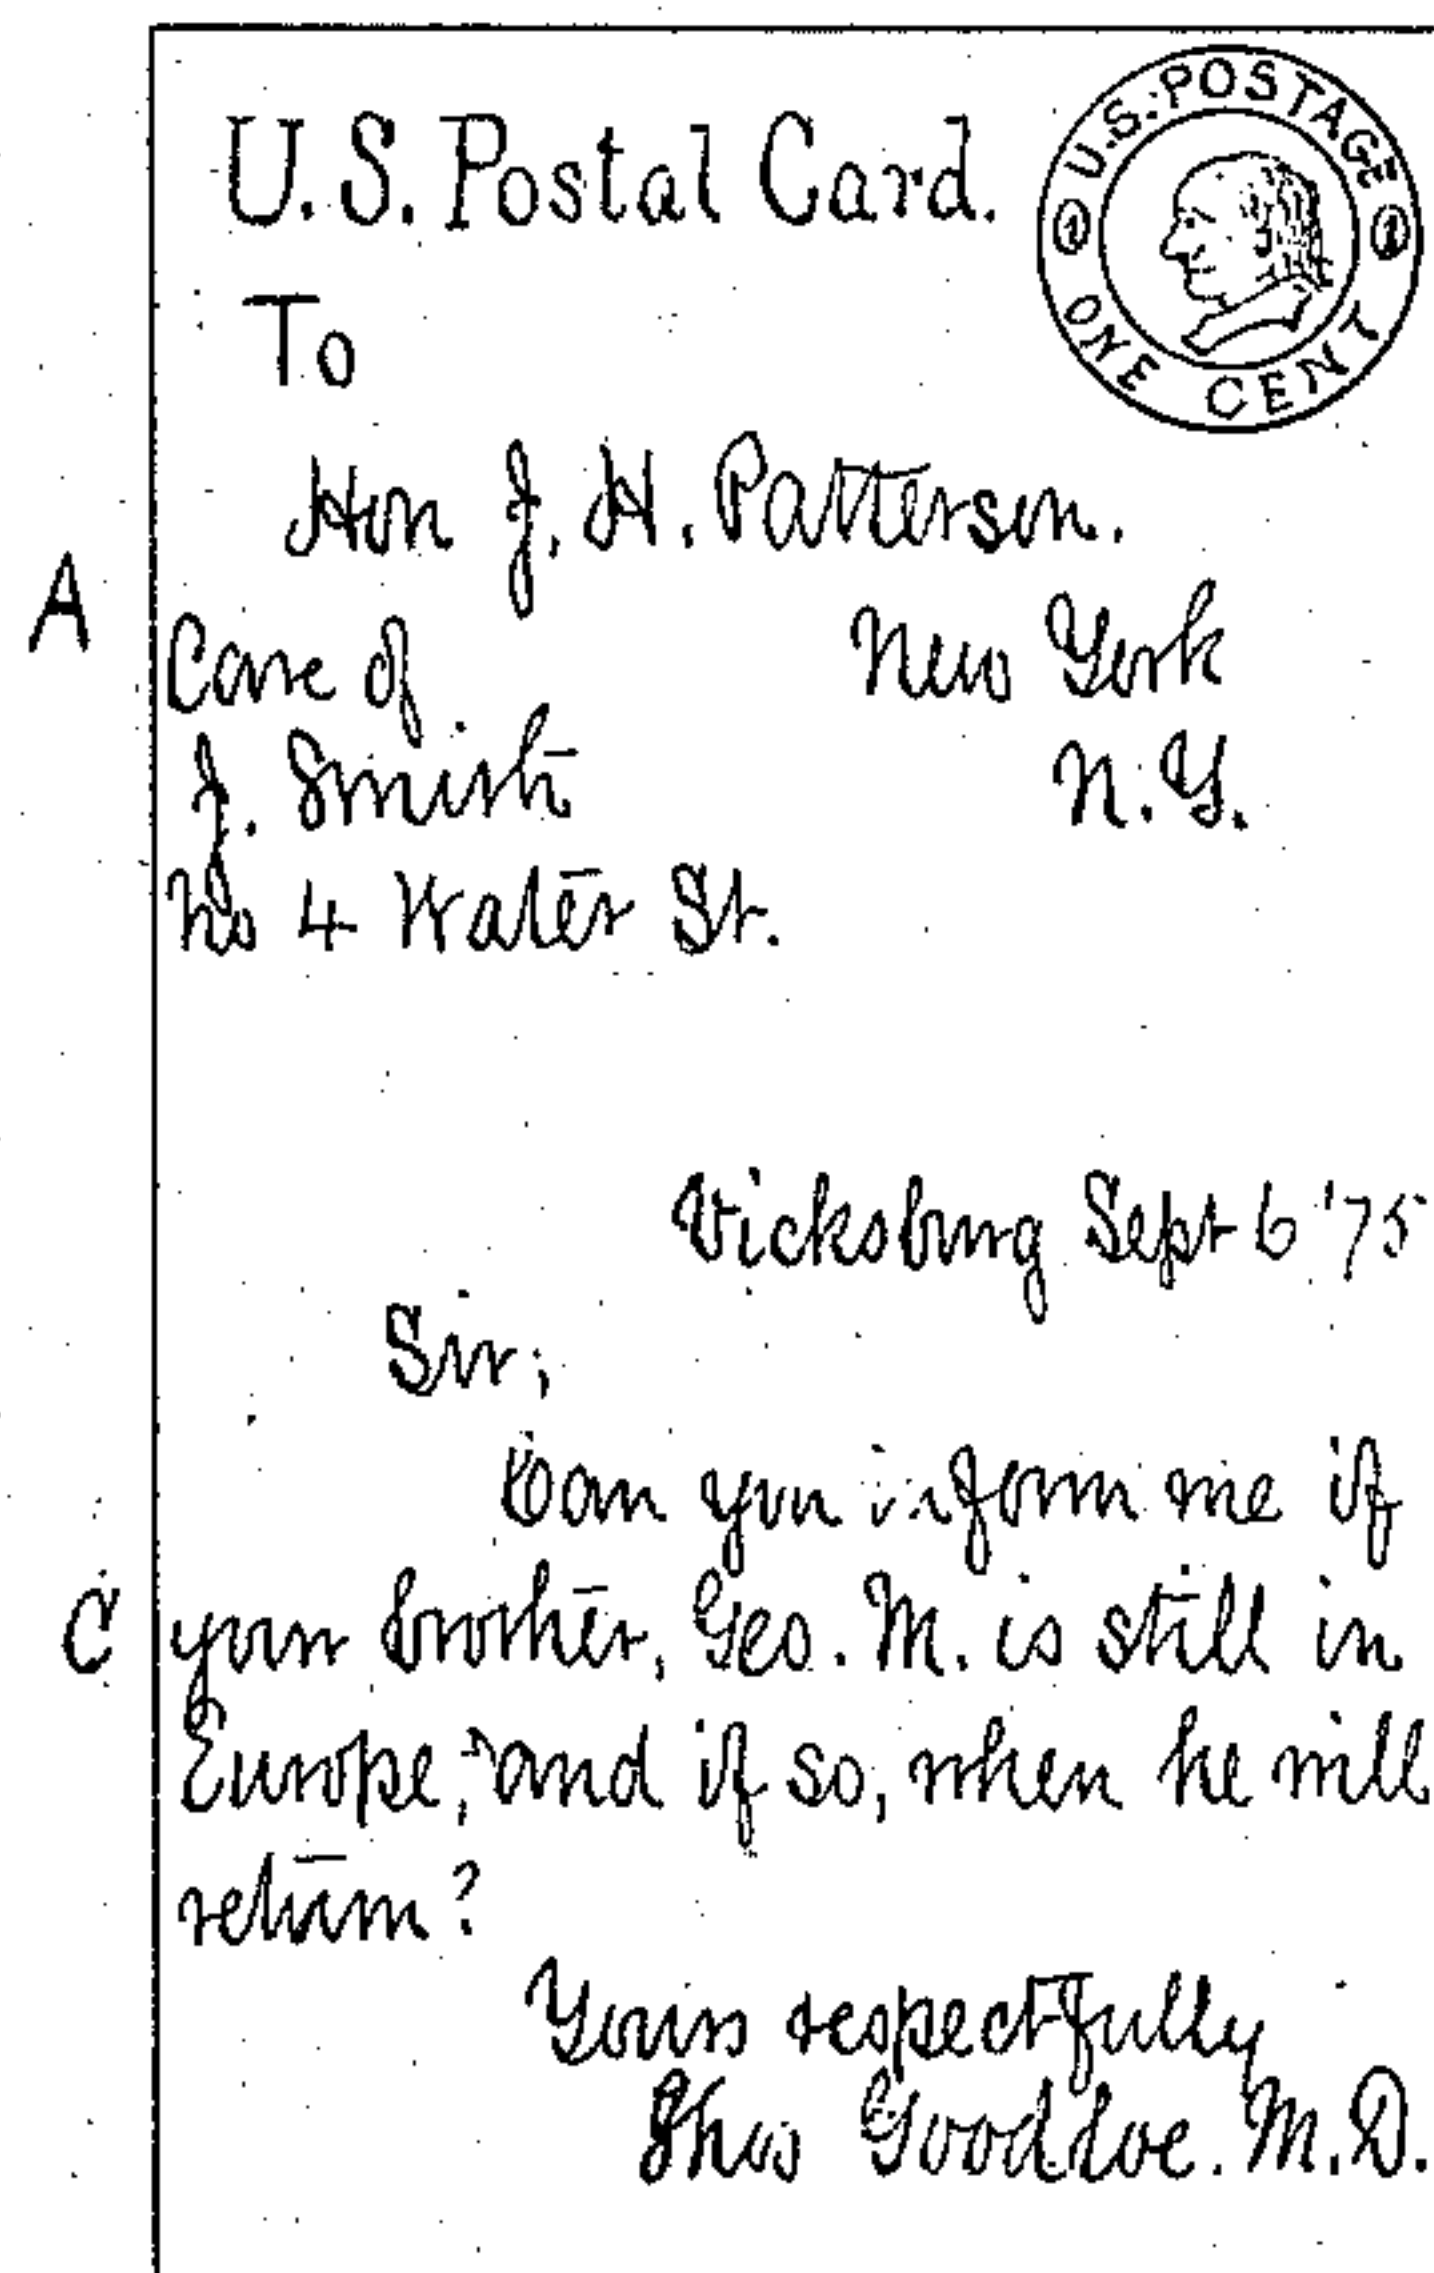 U.S. Postal Card.
U.S. POSTAGE
1 1
ONE CENT
To
Hon J. H. Patterson.
A
Care of New York
J. Smith N.Y.
No 4 Water St.
Vicksburg Sept 6 '75
Sir;
Can you inform me if
C your brother, Geo. M. is still in
Europe, and if so, when he will
return?
Yours respectfully
Thos Goodloe. M.D.